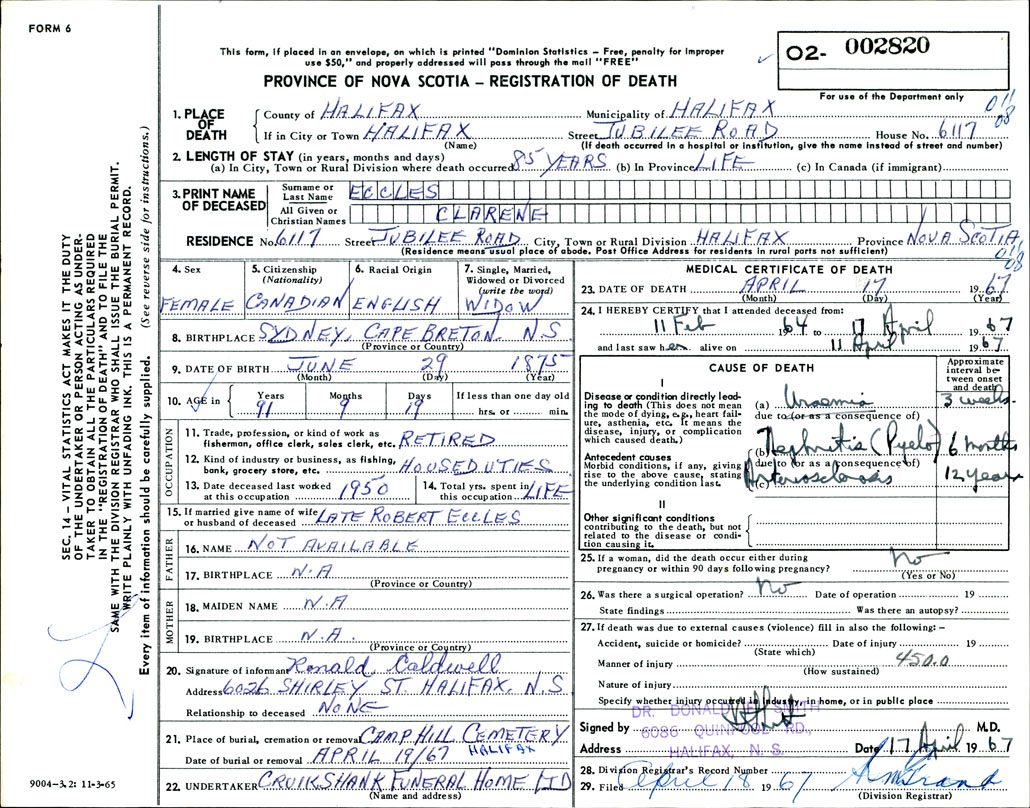 FORM 6
This form, if placed in an envelope, on which is printed "Dominion Statistics – Free, penalty for improper
use $50," and properly addressed will pass through the mail "FREE"
PROVINCE OF NOVA SCOTIA – REGISTRATION OF DEATH
02- 002820
For use of the Department only
011
08
1. PLACE OF DEATH
County of HALIFAX Municipality of HALIFAX
If in City or Town HALIFAX Street JUBILEE ROAD House No. 6117
(Name) (If death occurred in a hospital or institution, give the name instead of street and number)
2. LENGTH OF STAY (in years, months and days)
(a) In City, Town or Rural Division where death occurred 85 YEARS (b) In Province LIFE (c) In Canada (if immigrant)
3. PRINT NAME OF DECEASED
Surname or Last Name ECCLES
All Given or Christian Names CLARENE
RESIDENCE No. 6117 Street JUBILEE ROAD City, Town or Rural Division HALIFAX Province NOVA SCOTIA
(Residence means usual place of abode. Post Office Address for residents in rural parts not sufficient)
011
08
SEC. 14 – VITAL STATISTICS ACT MAKES IT THE DUTY
OF THE UNDERTAKER OR PERSON ACTING AS UNDER-
TAKER TO OBTAIN ALL THE PARTICULARS REQUIRED
IN THE "REGISTRATION OF DEATH" AND TO FILE THE
SAME WITH THE DIVISION REGISTRAR WHO SHALL ISSUE THE BURIAL PERMIT.
WRITE PLAINLY WITH UNFADING INK. THIS IS A PERMANENT RECORD.
Every item of information should be carefully supplied. (See reverse side for instructions.)
4. Sex FEMALE
5. Citizenship (Nationality) CANADIAN
6. Racial Origin ENGLISH
7. Single, Married, Widowed or Divorced (write the word) WIDOW
8. BIRTHPLACE SYDNEY, CAPE BRETON. N.S.
(Province or Country)
9. DATE OF BIRTH JUNE 29 1875
(Month) (Day) (Year)
10. AGE in Years 91 Months 9 Days 19 If less than one day old
hrs. or min.
OCCUPATION
11. Trade, profession, or kind of work as
fisherman, office clerk, sales clerk, etc. RETIRED
12. Kind of industry or business, as fishing,
bank, grocery store, etc. HOUSEDUTIES
13. Date deceased last worked
at this occupation 1950
14. Total yrs. spent in
this occupation LIFE
15. If married give name of wife
or husband of deceased LATE ROBERT ECCLES
FATHER
16. NAME NOT AVAILABLE
17. BIRTHPLACE N.A
(Province or Country)
MOTHER
18. MAIDEN NAME N.A
19. BIRTHPLACE N.A.
(Province or Country)
20. Signature of informant Ronald Caldwell
Address 6026 SHIRLEY ST. HALIFAX, N.S.
Relationship to deceased NONE
21. Place of burial, cremation or removal CAMP HILL CEMETERY
Date of burial or removal APRIL 19/67 HALIFAX
22. UNDERTAKER CRUIKSHANK FUNERAL HOME LTD
(Name and address)
MEDICAL CERTIFICATE OF DEATH
23. DATE OF DEATH APRIL 17 1967
(Month) (Day) (Year)
24. I HEREBY CERTIFY that I attended deceased from:
11 Feb 1964 to 17 April 1967
and last saw her alive on 11 April 1967
CAUSE OF DEATH
Approximate interval between onset and death
I
Disease or condition directly lead-
ing to death (This does not mean
the mode of dying, e.g., heart fail-
ure, asthenia, etc. It means the
disease, injury, or complication
which caused death.)
(a) Uraemia 3 weeks
due to (or as a consequence of)
(b) Nephritis (Pyelo) 6 months
Antecedent causes
Morbid conditions, if any, giving
rise to the above cause, stating
the underlying condition last.
due to (or as a consequence of)
(c) Arteriosclerosis 12 years
II
Other significant conditions
contributing to the death, but not
related to the disease or condi-
tion causing it.
25. If a woman, did the death occur either during
pregnancy or within 90 days following pregnancy? No
(Yes or No)
26. Was there a surgical operation? No Date of operation 19
State findings Was there an autopsy?
27. If death was due to external causes (violence) fill in also the following: –
Accident, suicide or homicide? Date of injury 19
(State which)
Manner of injury 450.0
(How sustained)
Nature of injury
Specify whether injury occurred in industry, in home, or in public place
DR. DONALD SMITH
Signed by 6086 QUINPOOL RD., M.D.
Address HALIFAX, N. S. Date 17 April 1967
28. Division Registrar's Record Number
29. Filed April 18 1967
(Division Registrar)
9004–3.2: 11-3-65